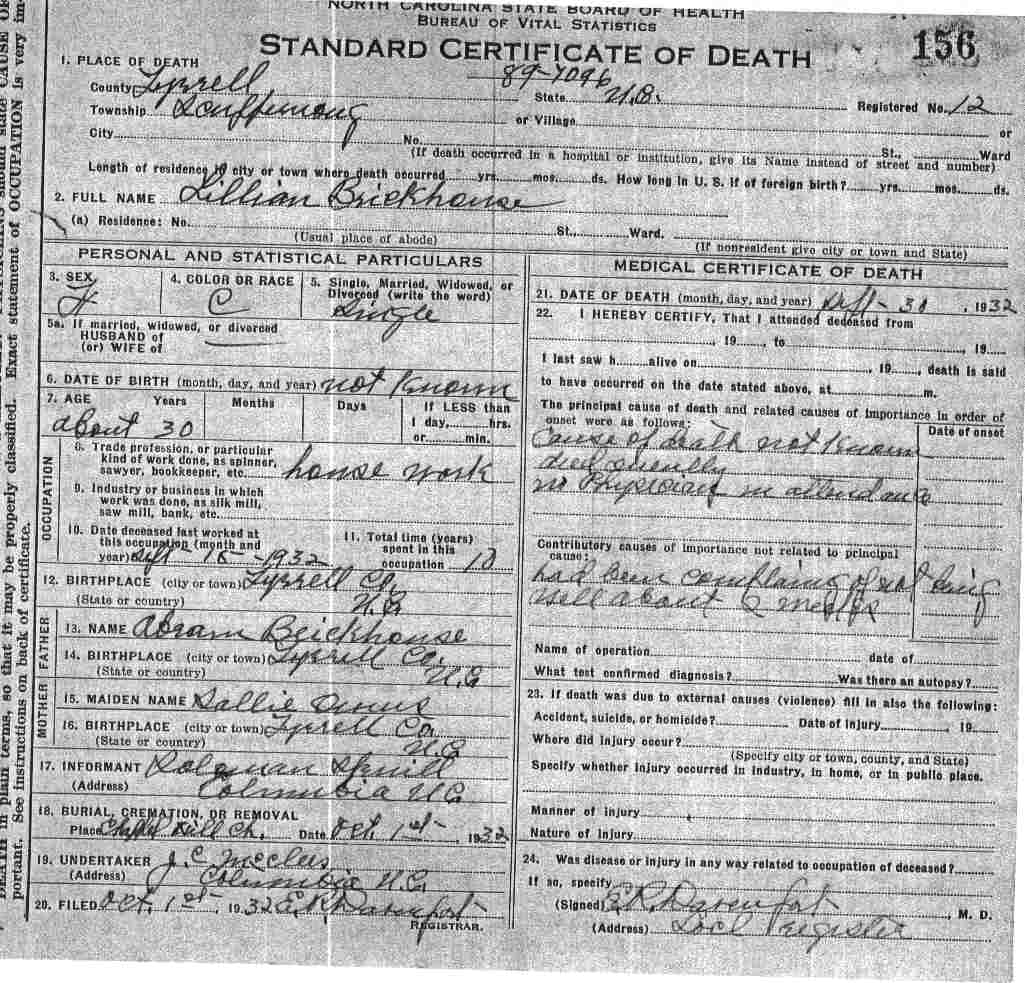 NORTH CAROLINA STATE BOARD OF HEALTH
BUREAU OF VITAL STATISTICS
STANDARD CERTIFICATE OF DEATH
156
1. PLACE OF DEATH
89-7096
County Tyrrell State N.C. Registered No. 12
Township Scuppernong or Village or
City No. St., Ward
(If death occurred in a hospital or institution, give its Name instead of street and number)
Length of residence in city or town where death occurred yrs. mos. ds. How long in U. S. if of foreign birth? yrs. mos. ds.
2. FULL NAME Lillian Brickhouse
(a) Residence: No. St., Ward.
(Usual place of abode) (If nonresident give city or town and State)
PERSONAL AND STATISTICAL PARTICULARS
3. SEX 4. COLOR OR RACE 5. Single, Married, Widowed, or
Divorced (write the word)
F C Single
5a. If married, widowed, or divorced
HUSBAND of
(or) WIFE of
6. DATE OF BIRTH (month, day, and year) not Known
7. AGE Years Months Days If LESS than
1 day, hrs.
or min.
about 30
OCCUPATION
8. Trade, profession, or particular
kind of work done, as spinner,
sawyer, bookkeeper, etc. house work
9. Industry or business in which
work was done, as silk mill,
saw mill, bank, etc.
10. Date deceased last worked at
this occupation (month and
year) Sept 15-1932
11. Total time (years)
spent in this
occupation 10
12. BIRTHPLACE (city or town) Tyrrell Co.
(State or country) N.C
FATHER
13. NAME Abram Brickhouse
14. BIRTHPLACE (city or town) Tyrrell Co.
(State or country) N.C
MOTHER
15. MAIDEN NAME Sallie Owens
16. BIRTHPLACE (city or town) Tyrrell Co.
(State or country) N.C
17. INFORMANT Soloman Spruill
(Address) Columbia N.C
18. BURIAL, CREMATION, OR REMOVAL
Place Chapel Hill Ch. Date Oct. 1st, 1932
19. UNDERTAKER J. C. McClees
(Address) Columbia N.C.
20. FILED Oct. 1st, 1932 E. R. Davenport
REGISTRAR.
MEDICAL CERTIFICATE OF DEATH
21. DATE OF DEATH (month, day, and year) Sept-30, 1932
22. I HEREBY CERTIFY, That I attended deceased from
, 19 , to , 19
I last saw h alive on , 19 , death is said
to have occurred on the date stated above, at m.
The principal cause of death and related causes of importance in order of
onset were as follows: Date of onset
Cause of death not Known
died
no Physician in attendance
Contributory causes of importance not related to principal
cause:
had been complaing of not being
well about 2
Name of operation date of
What test confirmed diagnosis? Was there an autopsy?
23. If death was due to external causes (violence) fill in also the following:
Accident, suicide, or homicide? Date of injury 19
Where did injury occur?
(Specify city or town, county, and State)
Specify whether injury occurred in industry, in home, or in public place.
Manner of injury
Nature of injury
24. Was disease or injury in any way related to occupation of deceased?
If so, specify
(Signed) E. R. Davenport, M. D.
(Address) Locl Register
DEATH in plain terms, so that it may be properly classified. Exact statement of OCCUPATION is very im-
portant. See instructions on back of certificate.